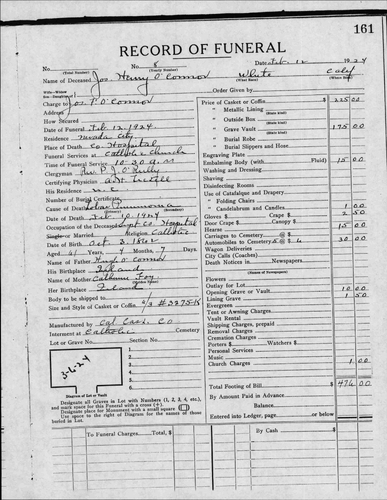 161
RECORD OF FUNERAL
No. 8 Date Feb. 12 1924
(Total Number) (Yearly Number)
Name of Deceased Jos. Henry O'Connor White Calif
(What Race) (Where Born)
Wife—Widow
Son—Daughter
Order Given by
Charge to Jos P O'Connor
Address
How Secured
Date of Funeral Feb. 12, 1924
Residence Nevada City
Place of Death Co. Hospital
Funeral Services at Catholic Church
Time of Funeral Service 10:30 a.m.
Clergyman Rev. P. J. O'Reilly
Certifying Physician
His Residence N. C.
Number of Burial Certificate
Cause of Death Lobar Pneumonia
Date of Death Feb. 10, 1924
Occupation of the Deceased Supt Co. Hospital
Single or Married Religion Catholic
Date of Birth Oct 3, 1862
Aged 61 Years 4 Months 7 Days
Name of Father Hugh O'Connor
His Birthplace Ireland
Name of Mother Catherine Foy
Her Birthplace Ireland
Body to be shipped to
Size and Style of Casket or Coffin 6/3 #5275-K
Manufactured by Cal. Cas. Co
Interment at Catholic Cemetery
Lot or Grave No. Section No.
5-6-24
Diagram of Lot or Vault
Designate all Graves in Lot with Numbers (1, 2, 3, 4, etc.),
and mark space for this Funeral with a cross (+).
Designate place for Monument with a small square
Use space to the right of Diagram for the names of those
buried in Lot.
Price of Casket or Coffin $ 225 00
" Metallic Lining
(State kind)
" Outside Box
(State kind)
" Grave Vault 175 00
(State kind)
" Burial Robe
(State kind)
" Burial Slippers and Hose
Engraving Plate
Embalming Body (with Fluid) 15 00
Washing and Dressing
Shaving
Disinfecting Rooms
Use of Catafalque and Drapery
" Folding Chairs
" Candelabrum and Candles 1 00
Gloves $ Crape $ 2 50
Door Crape $ Canopy $
Hearse 15 00
Carriages to Cemetery @ $
Automobiles to Cemetery 5 @ $ 6 30 00
Wagon Deliveries
City Calls (Coaches)
Death Notices in Newspapers
(Names of Newspapers)
Flowers
Outlay for Lot
Opening Grave or Vault 10 00
Lining Grave 1 50
Evergreen
Tent or Awning Charges
Vault Rental
Shipping Charges, prepaid
Removal Charges
Cremation Charges
Porters $ Watchers $
Personal Services
Music
Church Charges 1 00
Total Footing of Bill $ 476 00
By Amount Paid in Advance
Balance
Entered into Ledger, page or below
To Funeral Charges, Total $
By Cash $